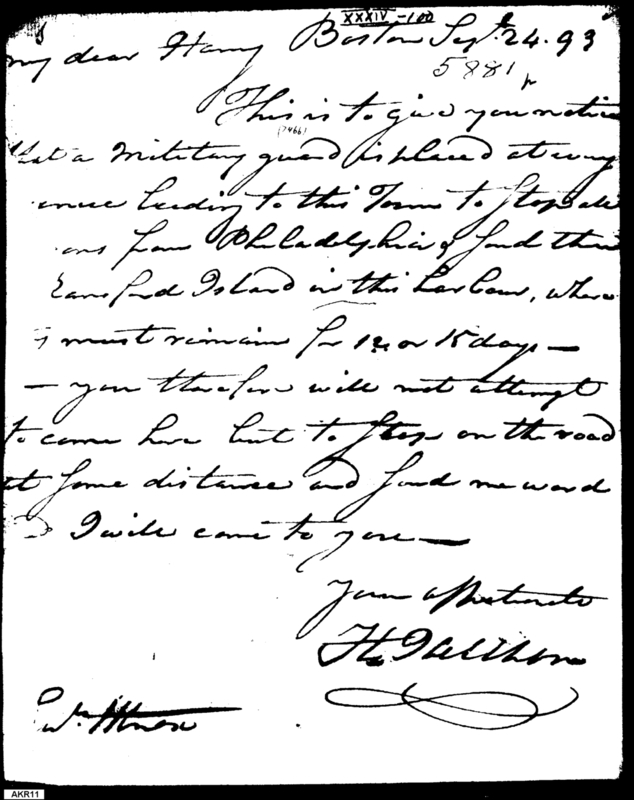 XXXIV-100
my dear Harry Boston Sept. 24. 93
5881
This is to give you notice
(7466)
that a military guard is placed at every
leading to this Town to Stop all
ons from Philadelphia & send them
Island in this harbour, where
must remain for 12 or 15 days —
— you therefore will not attempt
to come here but to Stop on the road
at some distance and send me word
I will come to you —
Your affectionate
H. Jackson
Knox
AKR11